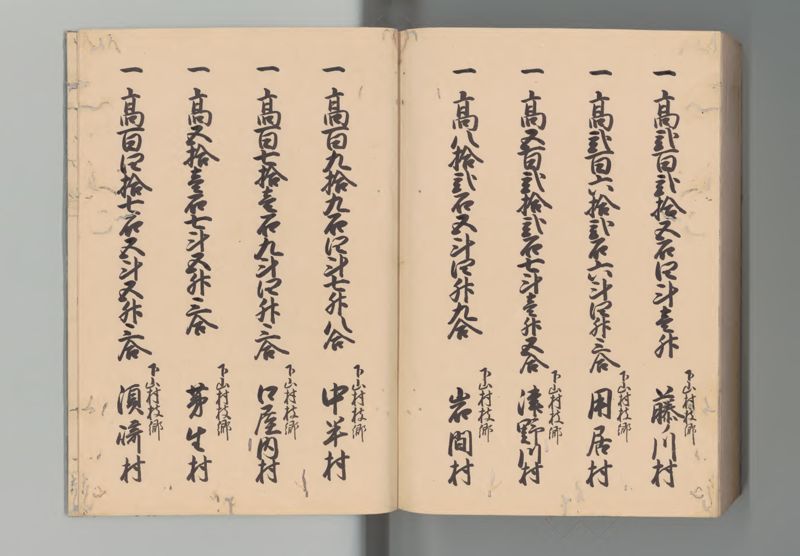 一 高弐百弐拾五石四斗壱升
下山村枝郷
藤ノ川村
一 高弐百六拾弐石六斗四升三合
下山村枝郷
用居村
一 高五百弐拾弐石七斗壱升五合
下山村枝郷
津野川村
一 高八拾弐石五斗四升九合
下山村枝郷
岩間村
一 高百九拾九石四斗七升八合
下山村枝郷
中半村
一 高百七拾壱石九斗四升三合
下山村枝郷
口屋内村
一 高五拾壱石七斗五升三合
下山村枝郷
茅生村
一 高百四拾七石五斗五升三合
下山村枝郷
須崎村